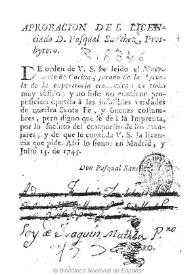 APROBACION DEL LICEN-
ciado D. Pasqual Sanchez, Pres-
bytero.
DE orden de V. S. he leido el Nuevo
Arte de Cocina, sacado de la Escuela
de la experiencia economica: es todo
muy sólido; y no solo no contiene pro-
posicion opuesta à las infalibles verdades
de nuestra Santa Fé, y buenas costum-
bres, pero digno que se dé à la Imprenta,
por lo sucinto del compuesto de los man-
jares, y de que le conceda V. S. la licen-
cia que pide. Assi lo siento en Madrid, y
Julio 15. de 1745.
Don Pasqual San
Soy de Joaquin
Biblioteca Nacional de España